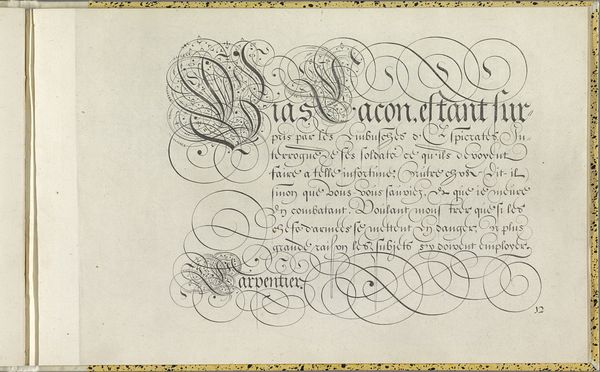 Bias Lacon. estant sur-
pris par les Embusches In-
terrogué de ses soldats ce qu'ils devoyent
faire a telle infortune: Autre chose Dit-il
sinon que vous-vous sauviez, Et que ie meure
En combatant. Voulant monstrer que si les
chefs d'armées se mettent En danger. A plus
grande raison les subiets s'y doivent employer.
Carpentier.
12